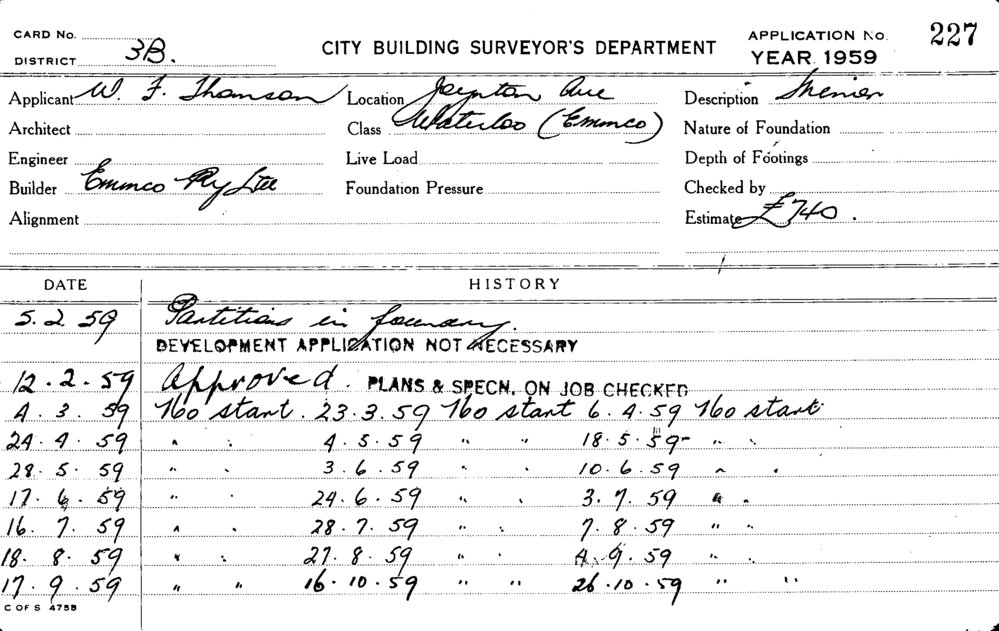 CARD No.
DISTRICT 3B.
CITY BUILDING SURVEYOR'S DEPARTMENT
APPLICATION No. 227
YEAR 1959
Applicant W. F. Thomson Location Joynton Ave Description Minor
Architect Class Waterloo (Emmco) Nature of Foundation
Engineer Live Load Depth of Footings
Builder Emmco Pty Ltd Foundation Pressure Checked by
Alignment Estimate £740.
DATE HISTORY
5.2.59 Partitions in foundry.
DEVELOPMENT APPLICATION NOT NECESSARY
12.2.59 Approved. PLANS & SPECN. ON JOB CHECKED
4.3.59 No start. 23.3.59 No start 6.4.59 No start
24.4.59 " " 4.5.59 " " 18.5.59 " "
28.5.59 " 3.6.59 " " 10.6.59 " "
17.6.59 " " 24.6.59 " " 3.7.59 " "
16.7.59 " " 28.7.59 " " 7.8.59 " "
18.8.59 " " 27.8.59 " " 4.9.59 " "
17.9.59 " " 16.10.59 " " 26.10.59 " "
C OF S 475B